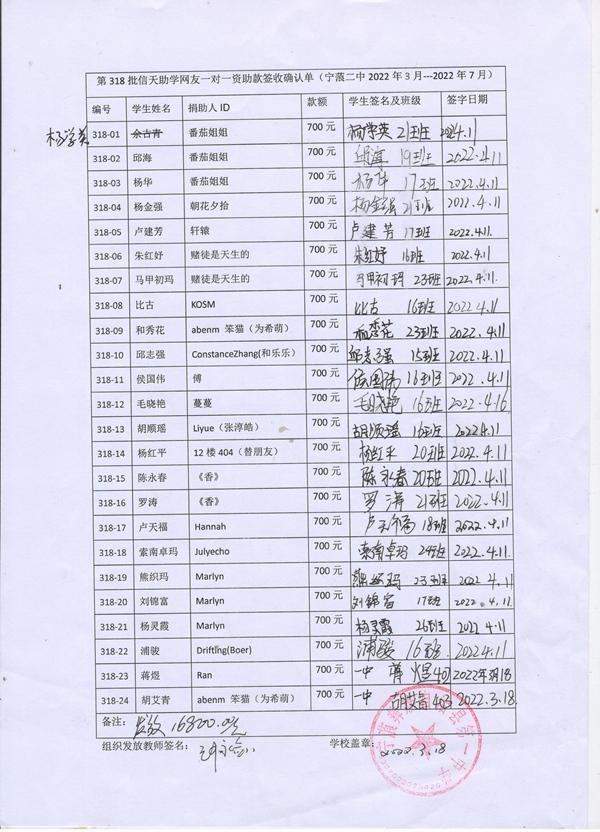 第318批信天助学网友一对一资助款签收确认单（宁蒗二中2022年3月---2022年7月）
编号 学生姓名 捐助人ID 款额 学生签名及班级 签字日期
杨学英 318-01 余古青 番茄姐姐 700元 杨学英 21班 2022.4.11
318-02 邱海 番茄姐姐 700元 邱海 19班 2022.4.11
318-03 杨华 番茄姐姐 700元 杨华 17班 2022.4.11
318-04 杨金强 朝花夕拾 700元 杨金强 21班 2022.4.11
318-05 卢建芳 轩辕 700元 卢建芳 17班 2022.4.11
318-06 朱红妤 赌徒是天生的 700元 朱红妤 16班 2022.4.11
318-07 马甲初玛 赌徒是天生的 700元 马甲初玛 23班 2022.4.11
318-08 比古 KOSM 700元 比古 16班 2022.4.11
318-09 和秀花 abenm 笨猫（为希萌） 700元 23班 2022.4.11
318-10 邱志强 ConstanceZhang(和乐乐） 700元 邱志强 15班 2022.4.11
318-11 侯国伟 傅 700元 侯国伟 16班 2022.4.11
318-12 毛晓艳 蔓蔓 700元 毛晓艳 16班 2022.4.16
318-13 胡顺瑶 Liyue（张淳皓） 700元 胡顺瑶 16班 2022.4.11
318-14 杨红平 12楼404（替朋友） 700元 杨红平 20班 2022.4.11
318-15 陈永春 《香》 700元 陈永春 20班 2022.4.11
318-16 罗涛 《香》 700元 罗涛 21班 2022.4.11
318-17 卢天福 Hannah 700元 卢天福 18班 2022.4.11
318-18 索南卓玛 Julyecho 700元 索南卓玛 24班 2022.4.11
318-19 熊织玛 Marlyn 700元 熊织玛 23班 2022.4.11
318-20 刘锦富 Marlyn 700元 刘锦富 17班 2022.4.11
318-21 杨灵霞 Marlyn 700元 杨灵霞 26班 2022.4.11
318-22 浦骏 Drifting(Boer) 700元 浦骏 16班 2022.4.11
318-23 蒋煜 Ran 700元 一中 蒋煜 401 2022年3月18
318-24 胡艾青 abenm 笨猫（为希萌） 700元 一中 胡艾青 403 2022.3.18
备注： 发放16800.0元
组织发放教师签名： 学校盖章： 2022.3.18